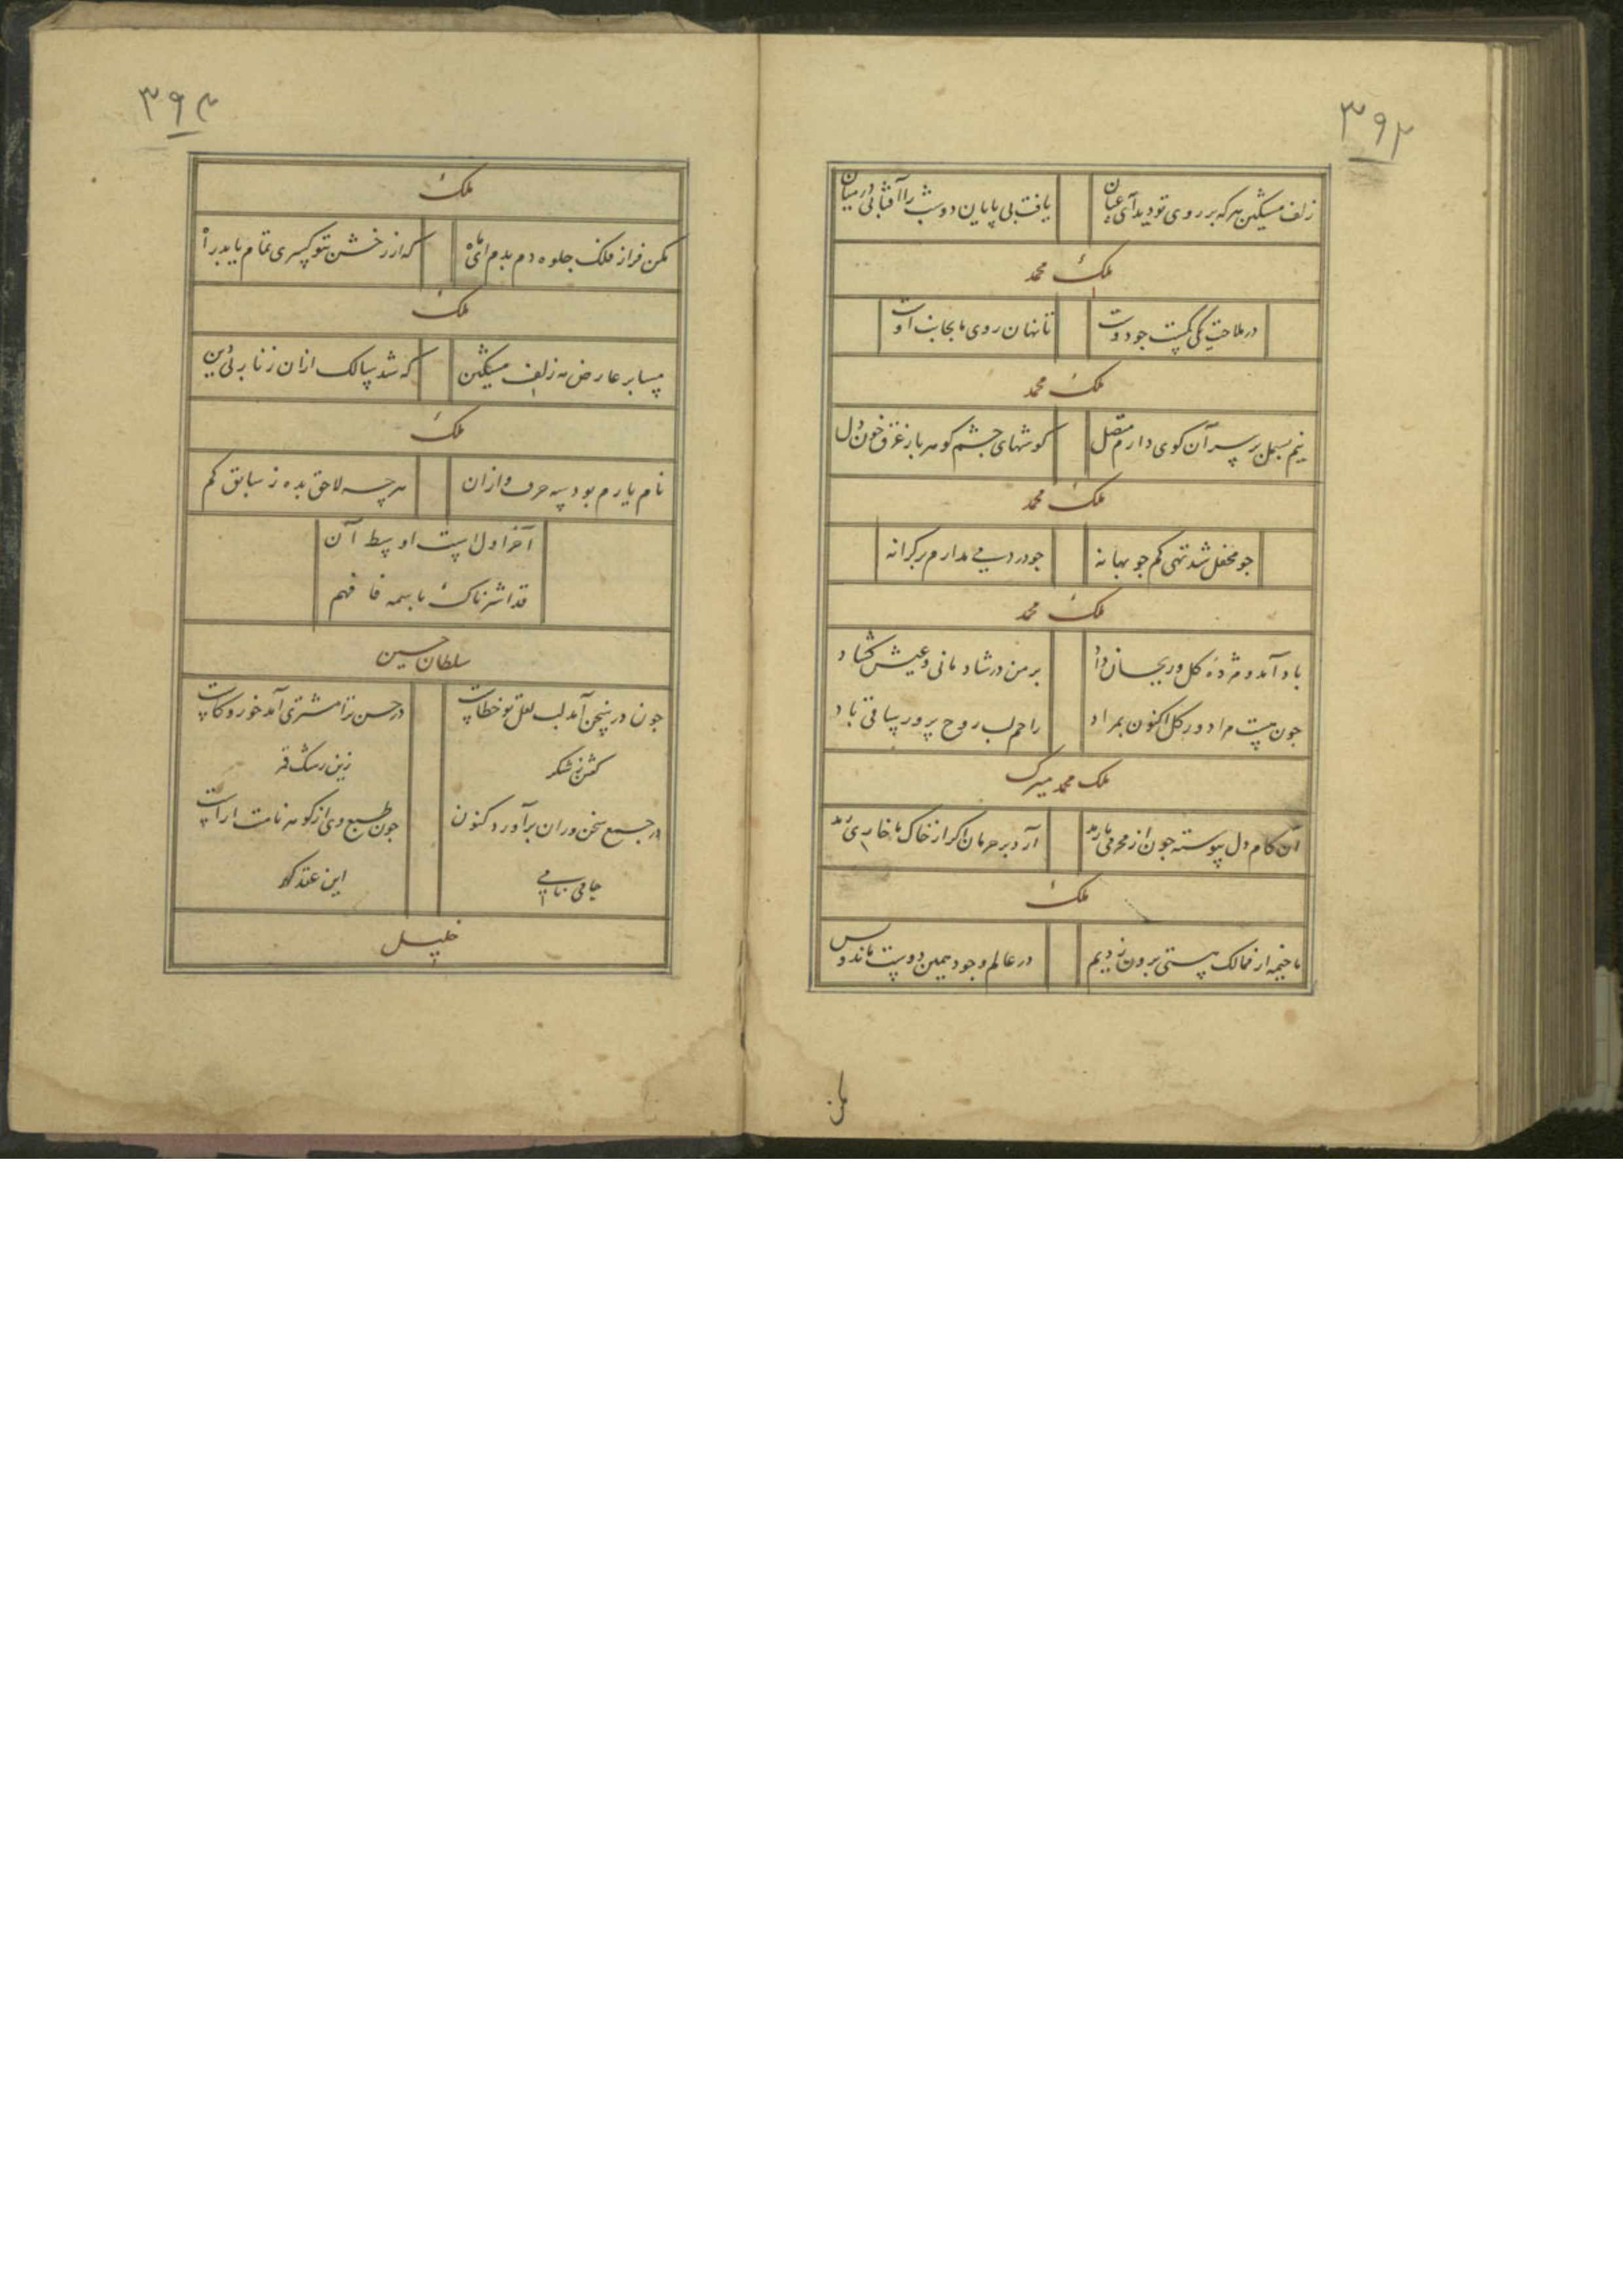 ۳۹۳
زلف مشکین هرکه بر روی تو دید آی عیان
یافت بی پایان دو شب را آفتابی در میان
ملک محمد
در ملاحت کی کمست جو دوست
تا نهان روی ما بجانب اوست
ملک محمد
نیم بسمل بر سر آن کوی دارم متصل
کوشهای چشم کوهربار غرق خون دل
ملک محمد
جو محفل شد تهی کم جو بهانه
جو در دست می مدارم بر کرانه
ملک محمد
باد آمد و مژده کل و ریحان داد
بر من در شادمانی و عیش کشاد
جون هست مرا دور کل اکنون بمراد
راحم لب روح پرور ساقی باد
ملک محمد میرک
آن کام دل پیوسته جون از محرمی ما رمد
آرد بر حرمان اکر از خاک ما خاری دمد
ملک
ما خیمه از ممالک هستی برون زدیم
در عالم وجود همین دوست ماند و بس
مکن
۳۹۴
ملک
مکن فراز فلک جلوه دم بدم ای ماه
که از رخش تو کسری تمام یابد راه
ملک
مسا بر عارض مه زلف مشکین
که شد سالک ازان زنار بی دین
ملک
نام یارم بود سه حرف وازان
هرچه لاحق بده ز سابق کم
آخر اول است اوسط آن
قد اشرناک باسمه فافهم
سلطان حسین
جون در سخن آمد لب لعل تو خطاست
در حسن ترا مشتری آمد خور و کاست
کفتن شکر
زین رشک قمر
در جمع سخن وران برآورد کنون
جون طبع وی از کوهر نامت اراست
جامی نامی
این عقد کهر
خلیل